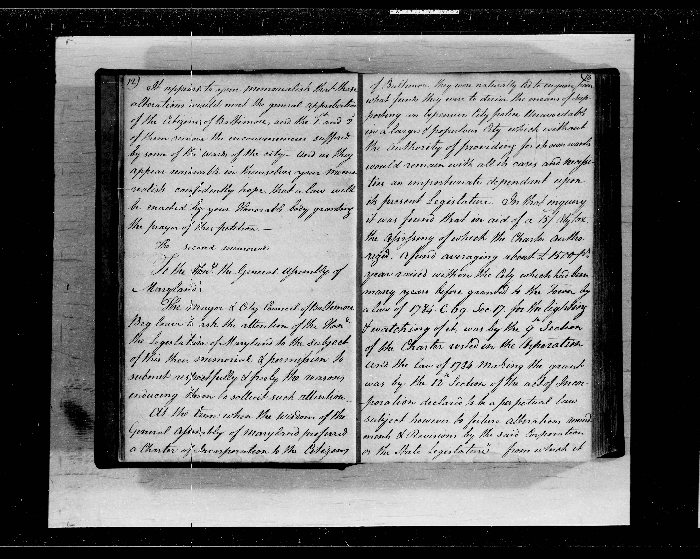 12)
It appears to your memorialists that these
alterations would meet the general approbation
of the Citizens of Baltimore, and the 1st and 2d
of them remove the inconveniences suffered
by some of the wards of the city. And as they
appear reasonable in themselves your memo
rialists confidently hope that a law will
be enacted by your Honorable body granting
the prayer of their petition. —
The second memorial
To the Honble the General Assembly of
Maryland.
The Mayor & City Council of Baltimore
Beg leave to ask the attention of the Honble
the Legislature of Maryland to the subject
of this their memorial & permission to
submit respectfully & freely the reasons
inducing them to sollicit such attention.
At the time when the wisdom of the
General Assembly of Maryland preferred
a Charter of Incorporation to the Citizens
of Baltimore, they were naturally led to enquire from
what funds they were to derive the means of sup
porting an expensive City police unavoidable
in a large & populous City which without
the authority of providing for its own wants
would remain with all its cares and
an importunate dependent upon
its present Legislature. In that enquiry
it was found that in aid of a 15/ tax
the assessing of which the Charter autho
rized. A fund averaging about £1500 pr
year raised within the City which had been
many years before granted to the Town by
a law of 1784 C. 69 Sec 17. for the lighting
& watching of it was by the 9th Section
of the Charter vested in the Corporation
and the law of 1784 making the grant
was by the 12th Section of the act of Incor-
poration declared to be a perpetual law
subject however to future alterations amend
ments & Revisions by the said Corporation
or the State Legislature. from which it